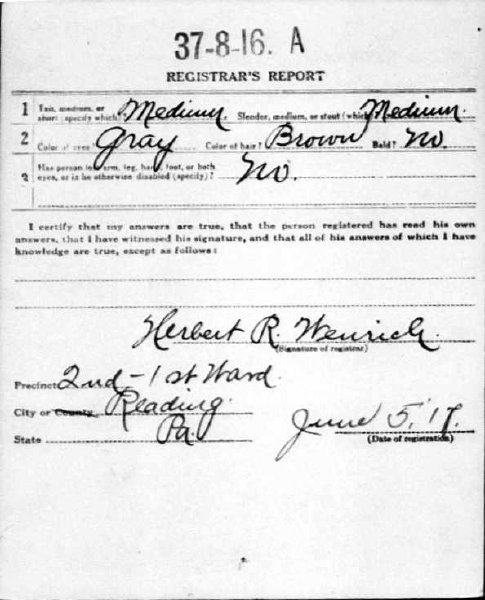 37-8-16. A
REGISTRAR'S REPORT
1 Tall, medium, or short (specify which)? Medium. Slender, medium, or stout (which)? Medium.
2 Color of eyes? Gray Color of hair? Brown Bald? No.
3 Has person lost arm, leg, hand, foot, or both
eyes, or is he otherwise disabled (specify)? No.
I certify that my answers are true, that the person registered has read his own
answers, that I have witnessed his signature, and that all of his answers of which I have
knowledge are true, except as follows:
Herbert R. Wenrich
(Signature of registrar)
Precinct 2nd - 1st Ward.
City or County Reading.
State Pa. June 5, 17.
(Date of registration)